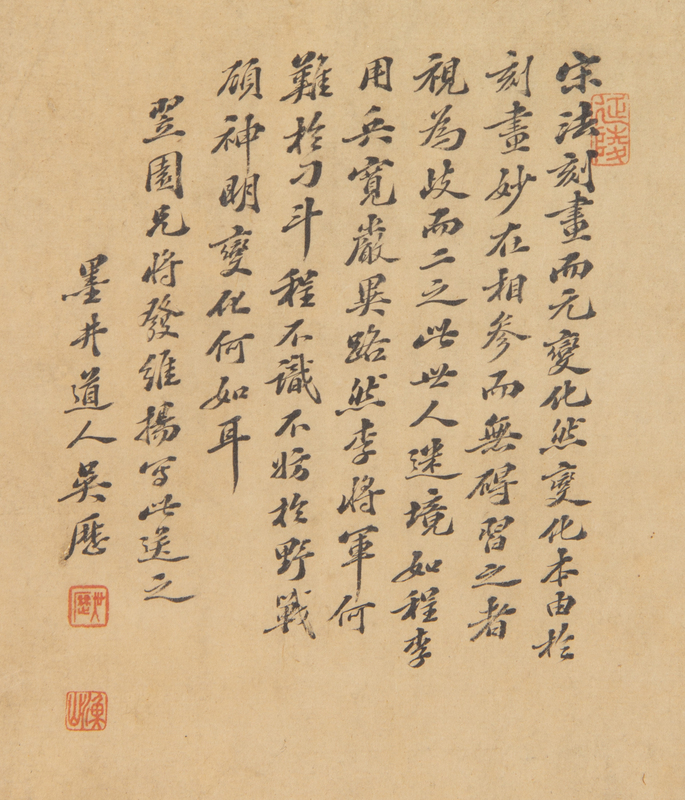 宋法刻畫而元變化然變化本由於
刻畫妙在相參而無碍習之者
視為歧而二之此世人迷境如程李
用兵寬嚴異路然李將軍何
難於刀斗程不識不妨於野戰
顾神明變化何如耳
翌園兄將發維揚写此送之
墨井道人吳歷
延陵
吳歷
漁山